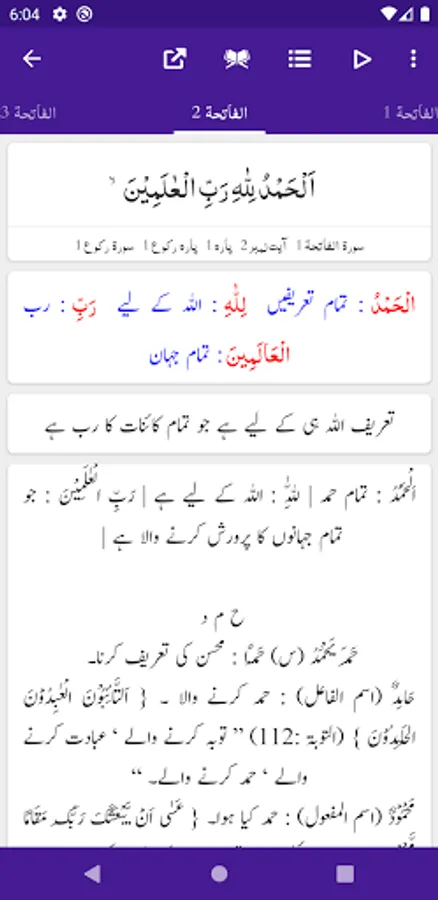 6:04
الفاتحة 1
الفاتحة 2
الفاتحة 3
اَلۡحَمۡدُ لِلّٰهِ رَبِّ الۡعٰلَمِيۡنَ ۙ
سورۃ الفاتحة 1 آیت نمبر 2 پارہ 1 پارہ رکوع 1 سورۃ رکوع 1
الْحَمْدُ : تمام تعریفیں لِلّٰهِ : اللہ کے لیے رَبِّ : رب
الْعَالَمِينَ : تمام جہان
تعریف اللہ ہی کے لیے ہے جو تمام کائنات کا رب ہے
اَلْحَمْدُ : تمام حمد | لِلّٰهِ : اللہ کے لیے ہے | رَبِّ الْعٰلَمِيْنَ : جو
تمام جہانوں کا پرورش کرنے والا ہے |
ح م د
حَمِدَ يَحْمَدُ (س) حَمْدًا : محسن کی تعریف کرنا۔
حَامِدٌ (اسم الفاعل) : حمد کرنے والا ۔ { اَلتَّآئِبُوْنَ الْعٰبِدُوْنَ
الْحٰمِدُوْنَ } (التوبۃ :112) ” توبہ کرنے والے ‘ عبادت کرنے
والے ‘ حمد کرنے والے۔ “
مَحْمُوْدٌ (اسم المفعول) : حمد کیا ہوا۔ { عَسٰٓى اَنْ يَّبْعَثَكَ رَبُّكَ مَقَامًا